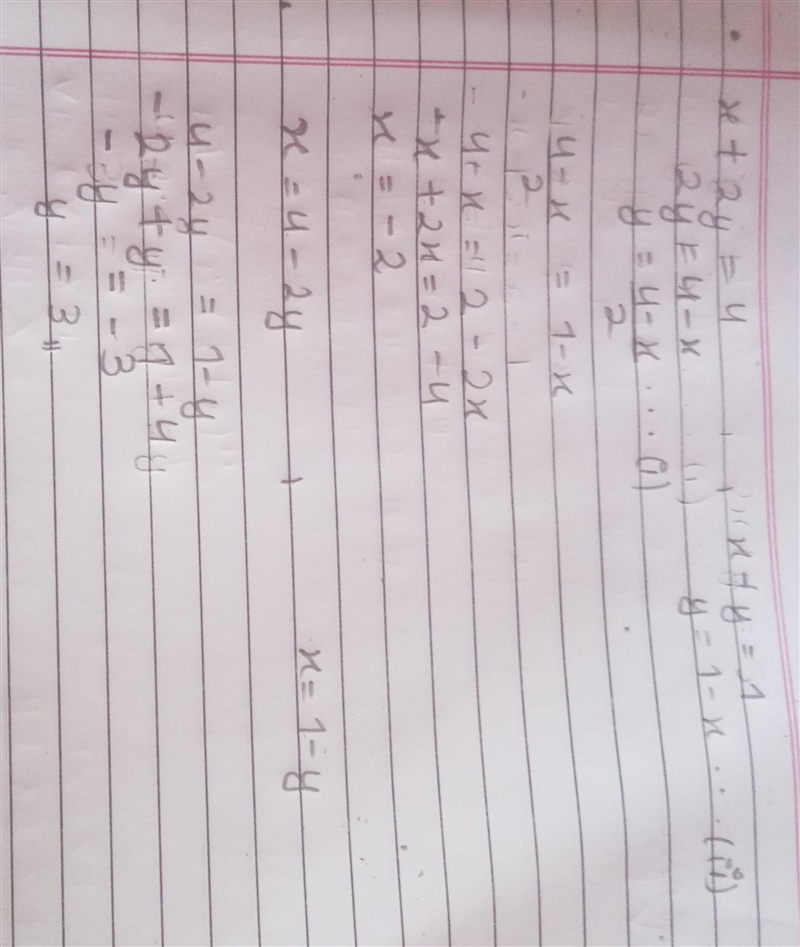 x + 2y = 4 x + y = 1
2y = 4 - x y = 1 - x ... (ii)
y = 4 - x ... (i)
2
4 - x = 1 - x
2
4 - x = 2 - 2x
- x + 2x = 2 - 4
x = - 2
x = 4 - 2y x = 1 - y
4 - 2y = 1 - y
- 2y + y = 1 + 4y
- y = - 3
y = 3 "